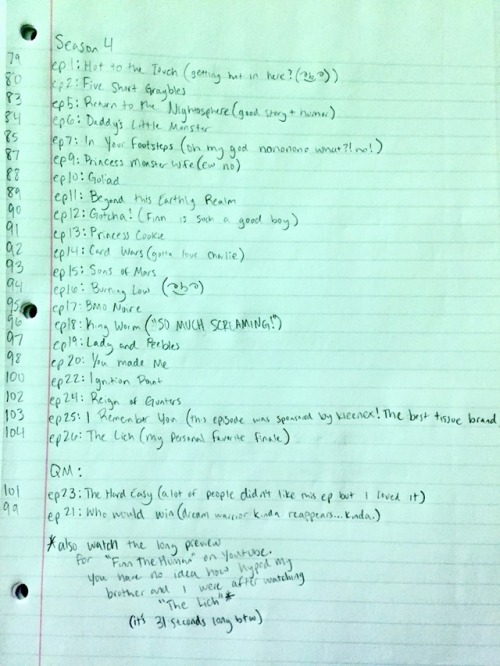 Season 4
79 ep 1: Hot to the Touch (getting hot in here? (ಠb͜ಠ))
80 ep 2: Five Short Graybles
83 ep 5: Return to the Nightosphere (good story + humor)
84 ep 6: Daddy's Little Monster
85 ep 7: In Your Footsteps (oh my god nononono what?! no!)
87 ep 9: Princess Monster Wife (ew no)
88 ep 10: Goliad
89 ep 11: Beyond this Earthly Realm
90 ep 12: Gotcha! (Finn is such a good boy)
91 ep 13: Princess Cookie
92 ep 14: Card Wars (gotta love Charlie)
93 ep 15: Sons of Mars
94 ep 16: Burning Low
95 ep 17: BMO Noire
96 ep 18: King Worm ("SO MUCH SCREAMING!")
97 ep 19: Lady and Peebles
98 ep 20: You Made Me
100 ep 22: Ignition Point
102 ep 24: Reign of Gunters
103 ep 25: I Remember You (this episode was sponsored by Kleenex! The best tissue brand
104 ep 26: The Lich (my personal favorite finale)
QM:
101 ep 23: The Hard Easy (a lot of people didn't like this ep but I loved it)
99 ep 21: Who would win (dream warrior kinda reappears...kinda.)
*also watch the long preview
for "Finn The Human" on Youtube.
You have no idea how hyped my
brother and I were after watching
"The Lich"*
(it's 31 seconds long btw)